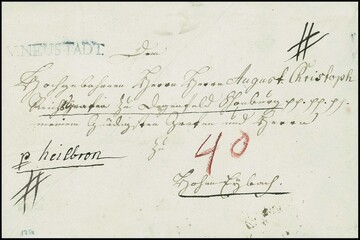 NEUSTADT.
Hochgebohrnen Herrn Herrn August Christoph
Reichsgrafen zu Degenfeld Schonburg pp. pp. pp.
meinem Gnädigsten Grafen und Herrn
zu
p. heilbron
40
Hohen Eybach.